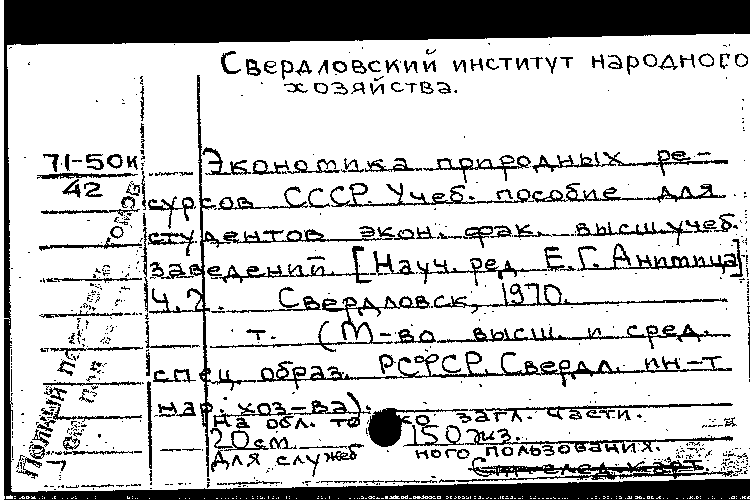 Свердловский институт народного
хозяйства.
71-50к
42
Экономика природных ре-
сурсов СССР. Учеб. пособие для
студентов экон. фак. высш. учеб.
заведений. [Науч. ред. Е.Г. Анимица]
Ч.2. Свердловск, 1970.
т. (М-во высш. и сред.
спец. образ. РСФСР. Свердл. ин-т
нар. хоз-ва).
На обл. то ко загл. части.
20см 150 экз.
Для служеб ного пользования.
См. след. карт
Полный
томов